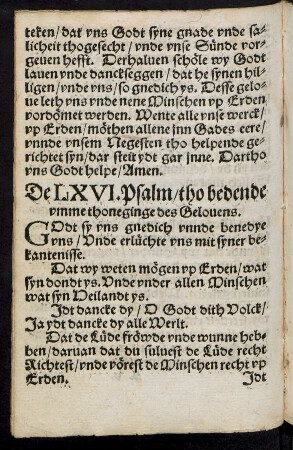 teken/ dat vns Godt syne gnade vnde sa-
licheit thogesecht / vnde vnse Sünde vor-
geuen hefft. Derhaluen schöle wy Godt
lauen vnde danckseggen / dat he synen hil-
ligen / vnde vns / so gnedich ys. Desse gelo-
ue leth yns vnde nene Minschen vp Erden
vordömet werden. Wente alle vnse werck/
vp Erden / möthen allene jnn Gades eere/
vnnde vnsem Negesten tho helpende ge-
richtet syn/ dar steit ydt gar jnne. Dartho
vns Godt helpe/ Amen.
De LXVI. Psalm/ tho bedende
vmme thoneginge des Gelouens.
GOdt sy vns gnedich vnnde benedye
vns / Vnde erlüchte vns mit syner be-
kantenisse.
Dat wy weten mögen vp Erden/ wat
syn dondt ys. Vnde vnder allen Minschen
wat syn Heilandt ys.
Idt dancke dy / O Godt dith Volck /
Ja ydt dancke dy alle Werlt.
Dat de Lüde fröwde vnde wunne heb-
ben/ daruan dat du suluest de Lüde recht
Richtest/ vnde vörest de Minschen recht vp
Erden. Idt